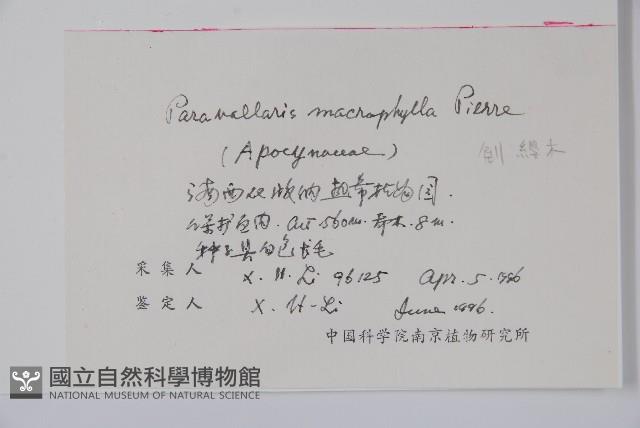 Paravallaris macrophylla Pierre
(Apocynaceae)
倒缨木
云南西双版纳热带植物园.
保护区内. alt 560m. 乔木. 8m.
种子具白色长毛
采集人 X. H. Li 96125 Apr. 5. 1996
鉴定人 X. H-Li June 1996.
中国科学院南京植物研究所
國立自然科學博物館
NATIONAL MUSEUM OF NATURAL SCIENCE